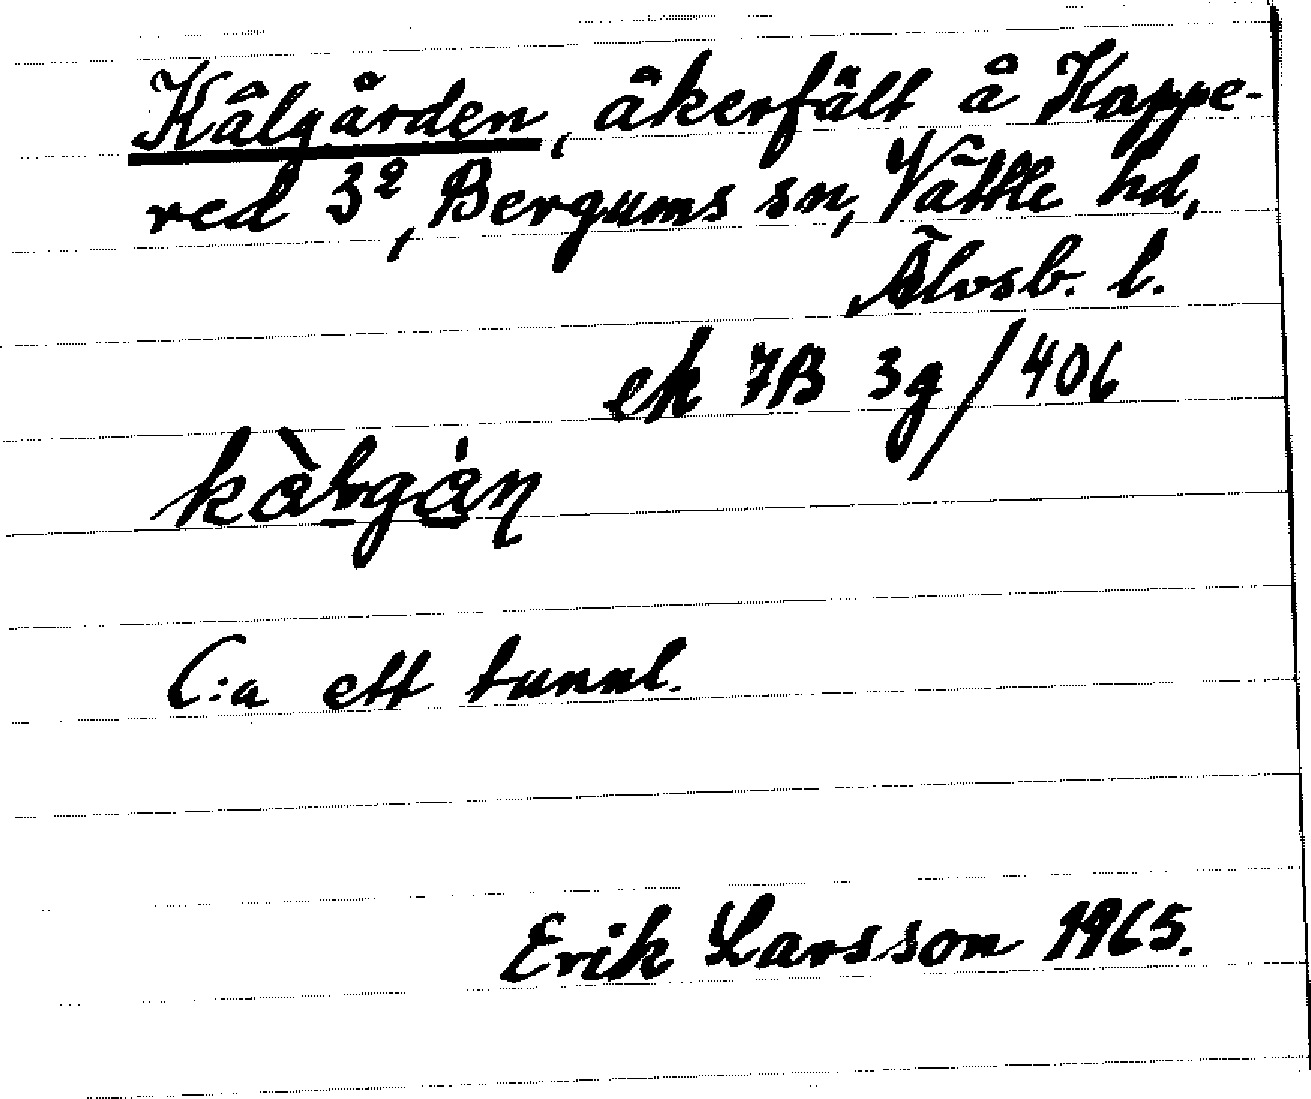 Kålgården, åkerfält å Kappe-
red 3², Bergums sn, Vättle hd,
Älvsb. l.
ek 7B 3g/406
C:a ett tunnl.
Erik Larsson 1965.